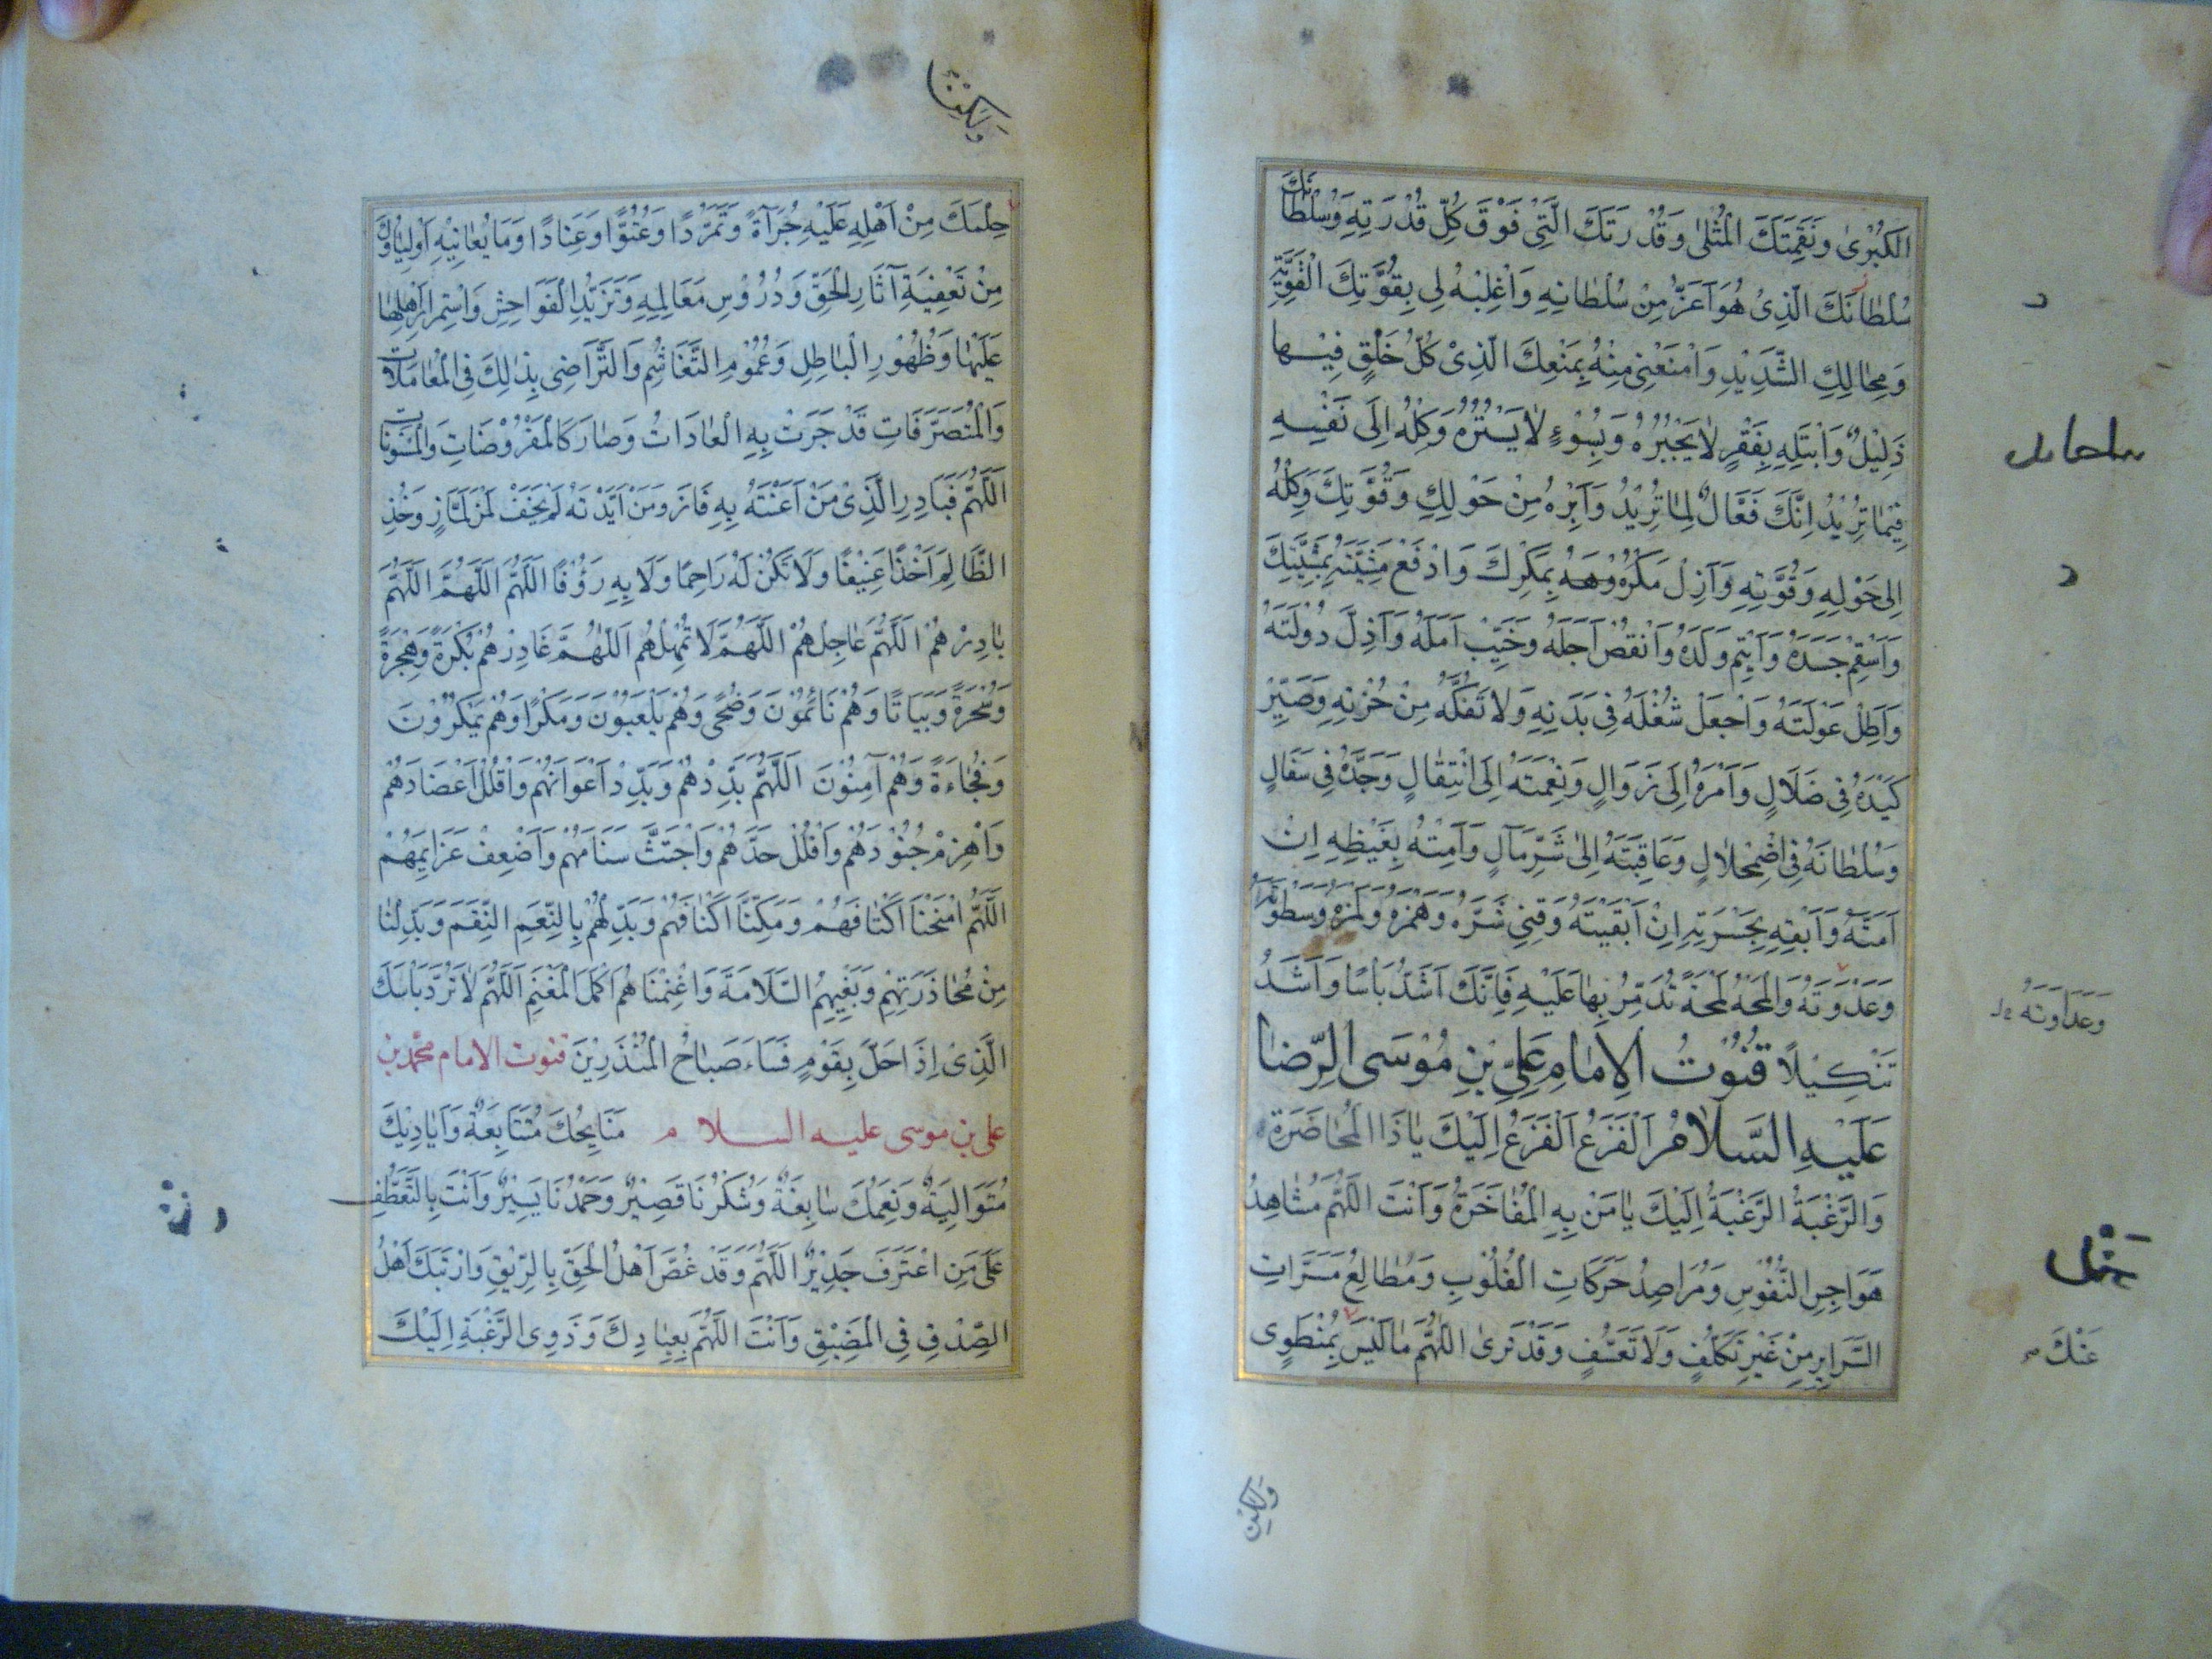 الْكُبْرىٰ وَنَقِمَتَكَ الْمُثْلىٰ وَقُدْرَتَكَ الَّتِىْ فَوْقَ كُلِّ قُدْرَتِهِ وَسُلْطَانَكَ
سُلْطَانَكَ الَّذِىْ هُوَ اَعَزُّ مِنْ سُلْطَانِهِ وَاغْلِبْهُ لِى بِقُوَّتِكَ الْقَوِيَّةِ
وَمِحَالِكِ الشَّدِيْدِ وَامْنَعْنِى مِنْهُ بِمَنْعِكَ الَّذِىْ كُلُّ خَلْقٍ فِيْهَا
ذَلِيْلٌ وَابْتَلِهِ بِفَقْرٍ لَا يَجْبُرُهُ وَبِسُوْءٍ لَا يَسْتُرُهُ وَكِلْهُ اِلَى نَفْسِهِ
فِيْمَا تُرِيْدُ اِنَّكَ فَعَّالٌ لِمَا تُرِيْدُ وَاَبْرِهُ مِنْ حَوْلِكِ وَقُوَّتِكَ وَكِلْهُ
اِلى حَوْلِهِ وَقُوَّتِهِ وَاَزِلْ مَكْرَهُ بِمَكْرِكَ وَادْفَعْ مَشِيَّتَهُ بِمَشِيَّتِكَ
وَاَسْقِمْ جَسَدَهُ وَاَيْتِمْ وَلَدَهُ وَانْقُصْ اَجَلَهُ وَخَيِّبْ اَمَلَهُ وَاَذِلَّ دُوْلَتَهُ
وَاَطِلْ عَوْلَتَهُ وَاجْعَلْ شُغْلَهُ فِى بَدَنِهِ وَلَا تَفُكَّهُ مِنْ حُزْنِهِ وَصَيِّرْ
كَيْدَهُ فِى ضَلَالٍ وَاَمْرَهُ اِلَى زَوَالٍ وَنِعْمَتَهُ اِلَى انْتِقَالٍ وَجَدَّهُ فِى سَفَالٍ
وَسُلْطَانَهُ فِى اضْمِحْلَالٍ وَعَاقِبَتَهُ اِلىٰ شَرِّ مَآلٍ وَاَمِتْهُ بِغَيْظِهِ اِنْ
اَمَتَّهُ وَاَبْقِهِ بِحَسْرَتِهِ اِنْ اَبْقَيْتَهُ وَقِنِى شَرَّهُ وَهَمْزَهُ وَلَمْزَهُ وَسَطْوَتَهُ
وَعَدْوَتَهُ وَالْمَحْهُ لَمْحَةً تُدَمِّرُ بِهَا عَلَيْهِ فَاِنَّكَ اَشَدُّ بَأْسًا وَاَشَدُّ
تَنْكِيْلًا قُنُوْتُ الْاِمَامِ عَلِيِّ بْنِ مُوْسَى الرِّضَا
عَلَيْهِ السَّلَامُ اَلْفَزَعُ اَلْفَزَعُ اِلَيْكَ يَا ذَا الْمُحَاضَرَةِ
وَالرَّغْبَةُ الرَّغْبَةُ اِلَيْكَ يَا مَنْ بِهِ الْمُفَاخَرَةُ وَاَنْتَ اللَّهُمَّ مُشَاهِدُ
هَوَاجِسِ النُّفُوْسِ وَمُرَاصِدُ حَرَكَاتِ الْقُلُوْبِ وَمُطَالِعُ مَسَرَّاتِ
السَّرَايِرِ مِنْ غَيْرِ تَكَلُّفٍ وَلَا تَعَسُّفٍ وَقَدْ تَرىٰ اللّٰهُمَّ مَا لَيْسَ بِمُنْطَوٍى
وَعَدَاوَتَهُ
عَنْكَ
وَلٰكِنْ
حِلْمَكَ مِنْ اَهْلِهِ عَلَيْهِ جُرْاَةً وَتَمَرُّدًا وَعُتُوًّا وَعِنَادًا وَمَا يُعَانِيْهِ اَوْلِيَاؤُكَ
مِنْ تَعْفِيَةِ آثَارِ الْحَقِّ وَدُرُوْسِ مَعَالِمِهِ وَتَزَيُّدِ الْفَوَاحِشِ وَاسْتِمْرَارِ اَهْلِهَا
عَلَيْهَا وَظُهُوْرِ الْبَاطِلِ وَعُمُوْمِ التَّغَاشُمِ وَالتَّرَاضِى بِذٰلِكَ فِى الْمُعَامَلَاتِ
وَالْمُتَصَرَّفَاتِ قَدْ جَرَتْ بِهِ الْعَادَاتُ وَصَارَ كَالْمَفْرُوْضَاتِ وَالْمَسْنُوْنَاتِ
اللَّهُمَّ فَبَادِرِ الَّذِىْ مَنْ اَعَنْتَهُ بِهِ فَازَ وَمَنْ اَيَّدْتَهُ لَمْ يَخَفْ لَمْزَ لَمَّازٍ وَخُذِ
الظَّالِمَ اَخْذًا عَنِيْفًا وَلَا تَكُنْ لَهُ رَاحِمًا وَلَا بِهِ رَؤُفًا اللَّهُمَّ اللَّهُمَّ اللَّهُمَّ
بَادِرْهُمْ اَللَّهُمَّ عَاجِلْهُمْ اللَّهُمَّ لَا تُمْهِلْهُمْ اَللّٰهُمَّ غَادِرْهُمْ بُكْرَةً وَهَجْرَةً
وَسُحْرَةً وَبَيَاتًا وَهُمْ نَائِمُوْنَ وَضُحًى وَهُمْ يَلْعَبُوْنَ وَمَكْرًا وَهُمْ يَمْكُرُوْنَ
وَفُجَاءَةً وَهُمْ آمِنُوْنَ اَللَّهُمَّ بَدِّدْهُمْ وَبَدِّدْ اَعْوَانَهُمْ وَاقْلُلْ اَعْضَادَهُمْ
وَاهْزِمْ جُنُوْدَهُمْ وَافْلُلْ حَدَّهُمْ وَاجْتَثَّ سَنَامَهُمْ وَاَضْعِفْ عَزَايِمَهُمْ
اَللَّهُمَّ امْنَحْنَا اَكْتَافَهُمْ وَمَكِّنَّا اَكْنَافَهُمْ وَبَدِّلْهُمْ بِالنِّعَمِ النِّقَمَ وَبَدِّلْنَا
مِنْ مُحَاذَرَتِهِمْ وَبَغْيِهِمُ السَّلَامَةَ وَاغْنِمْنَاهُمْ اَكْمَلَ الْمَغْنَمِ اَللَّهُمَّ لَا تَرُدَّ بَاْسَكَ
الَّذِىْ اِذَا حَلَّ بِقَوْمٍ فَسَاءَ صَبَاحُ الْمُنْذَرِيْنَ قنوت الامام محمد بن
على بن موسى عليه السلام مَنَايِحُكَ مُتَتَابِعَةٌ وَاَيَادِيْكَ
مُتَوَالِيَةٌ وَنِعَمُكَ سَابِغَةٌ وَشُكْرُنَا قَصِيْرٌ وَحَمْدُنَا يَسِيْرٌ وَاَنْتَ بِالتَّعَطُّفِ
عَلَى مَنِ اعْتَرَفَ جَدِيْرٌ اَللَّهُمَّ وَقَدْ غُصَّ اَهْلُ الْحَقِّ بِالرِّيْقِ وَارْتَبَكَ اَهْلُ
الصِّدْقِ فِى الْمَضِيْقِ وَاَنْتَ اللَّهُمَّ بِعِبَادِكَ وَذَوِى الرَّغْبَةِ اِلَيْكَ